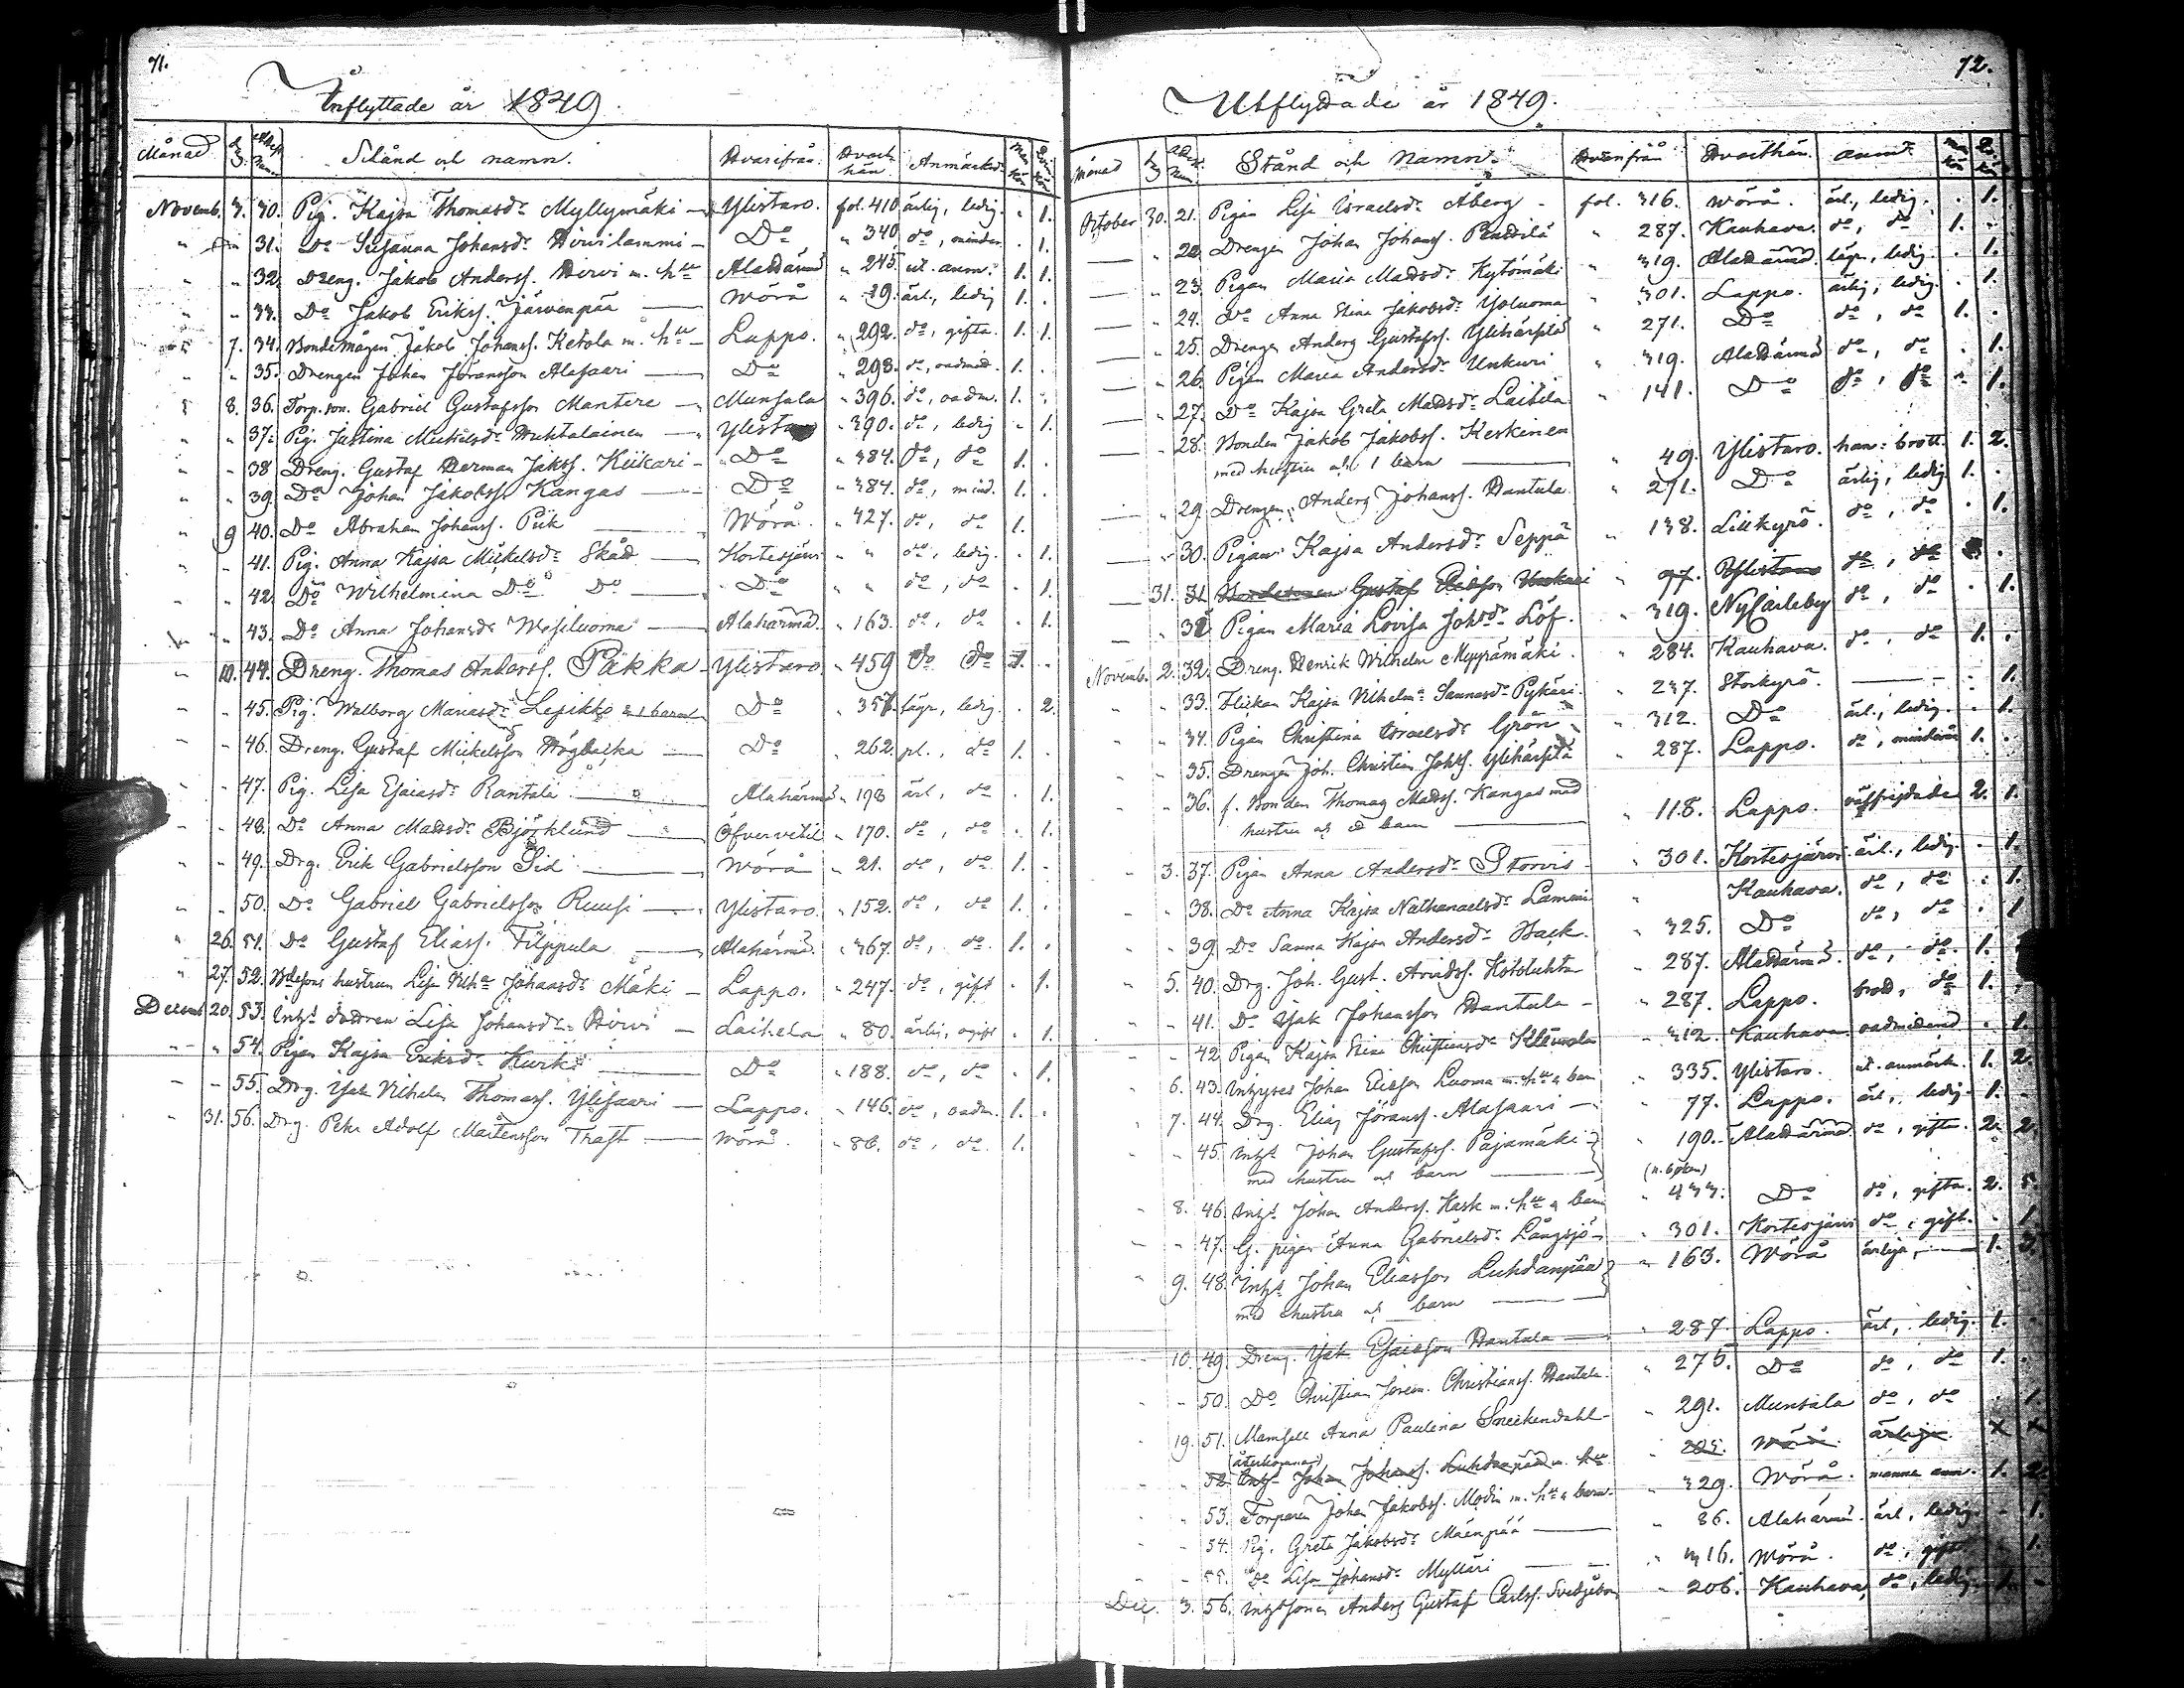 71.
Inflyttade år 1849.
Månad Dag Attest Num. Stånd och namn. Hvarifrån. Hvart hän Anmärkn. Man kön Qvin kön
Novemb. 3. 30. Pig. Kajsa Thomasdr Myllymäki — Ylistaro. fol. 410 ärlig, ledig. - 1.
" " 31. Do Susanna Johansdr Hirvilammi — Do " 340. do, minder. - 1.
" " 32. Dreng. Jakob Anderss. Hirvi m. htru Alahärmä " 245. ut. anm. 1. 1.
" " 33. Do Jakob Erikss. Järvenpää — Wörå " 19. ärl., ledig 1. -
" 7. 34. Bondemågen Jakob Johanss. Ketola m. htru — Lappo. " 292. do, gifta. 1. 1.
" " 35. Drengen Johan Jöransson Alasaari — Do " 298. do, oadmit. 1. -
" 8. 36. Torp. son. Gabriel Gustafsson Mantere — Munsala " 396. do, oadm. 1. -
" " 37. Pig. Justina Mickelsdr Huhtalainen — Ylistaro " 390. do, ledig - 1.
" " 38. Dreng. Gustaf Herman Jakss. Kiikari — Do " 384. do, do 1. -
" " 39. Do Johan Jakobsson Kangas — Do " 384. do, mind. 1. -
" 9 40. Do Abraham Johanss. Piik — Wörå. " 427. do, do 1.
" - 41. Pig. Anna Kajsa Mickelsdr Skåd — Kortesjärvi " " do, ledig. - 1.
" - 42. Do Wilhelmina Do Do — Do " " do, do - 1.
" - 43. Do Anna Johansdr Wesiluoma — Alahärmä. " 163. do, do - 1.
" 10. 44. Dreng. Thomas Anderss. Pukka — Ylistaro. " 459 do do 1. -
" - 45. Pig. Walborg Mariasdr Lesikko m 1 barn Do " 357. lägr, ledig. - 2.
" - 46. Dreng. Gustaf Mickelsson Högbacka — Do " 262. pl., do 1. -
- - 47. Pig. Lisa Esaiasdr Rantala — Alahärmä " 193 ärl, do - 1.
- - 48. Do Anna Mattsdr Björklund — Öfvervetil " 170. do, do - 1.
- - 49. Drg. Erik Gabrielsson Sid — Wörå " 21. do, do 1. -
" - 50. Do Gabriel Gabrielsson Ruusi — Ylistaro. " 152. do, do 1. -
" 26. 51. Do Gustaf Eliass. Filppula — Alahärmä. " 367. do, do. 1. -
" 27. 52. hustrun Lisa Johansdr Mäki — Lappo. " 247. do, gift - 1.
Decemb 20. 53. Inhs dottren Lisa Johansdr Hirvi — Laihela " 80. ärlig, ogift - 1.
- - 54. Pigan Kajsa Eriksdr Kurki — Do " 188. do, do - 1.
- - 55. Drg. Isak Vilhelm Thomass. Ylisaari — Lappo. " 146. do, oadm. 1. -
" 31. 56. Drg. Petr Adolf Mårtensson Träff — Wörå. " 86. do, do. 1.
72.
Utflyttade år 1849.
Månad Dag Attest Num. Stånd och Namn. Hvarifrån Hvarthän. anm. Man kön Qvin kön
October 30. 21. Pigan Lisa Israelsdr Åberg - fol. 316. Wörå. ärl, ledig. - 1.
— " 22. Drengen Johan Johanss. Penttilä " 287. Kauhava. do, do 1. -
— " 23. Pigan Maria Mattsdr Kytömäki " 319. Alahärmä. lägr, ledig. - 1.
— " 24. Do Anna Stina Jakobsdr Ypluoma " 301. Lappo. ärlig, ledig - 1.
— " 25. Drengen Anders Gustafss. Ylihärsilä " 271. Do do, do 1. -
— " 26. Pigan Maria Andersdr Unkuri " 319. Alahärmä do, do - 1.
— " 27. Do Kajsa Greta Mattsdr Laitila " 141. Do do, do - 1.
— " 28. Bonden Jakob Jakobss. Keskinen
med hustru och 1 barn — " 49. Ylistaro. han: brott. 1. 2.
— " 29. Drengen Anders Johanss. Hantula " 271. Do ärlig, ledig 1. -
— " 30. Pigan Kajsa Andersdr Seppä " 138. Lillkyrö. do, do - 1.
— 31. 31. Bondesonen Gustaf Eliasson " 97. Ylistaro do, do -
— " 31. Pigan Maria Lovisa Johsdr Löf. " 319. Nykarleby do, do - 1.
Novemb. 2. 32. Dreng. Henrik Wilhelm Myyrämäki. " 284. Kauhava. do, do 1. -
" " 33. Flickan Kajsa Vilhelma Sannasdr Pykäri " 237. Storkyrö. — - 1.
" " 34. Pigan Christina Israelsdr Grön " 312. Do ärl., ledig. - 1.
- - 35. Drengen Joh. Christian Johss. Ylihärsilä " 287. Lappo. do, minderår 1. -
- - 36. f. Bonden Thomas Matss. Kangas med
hustru och ett barn — " 118. Lappo. välfrejdade 2. 1.
" 3. 37. Pigan Anna Andersdr Storvis - " 301. Kortesjärvi. ärl., ledig. - 1.
- - 38. Do Anna Kajsa Nathanaelsdr Lammi " Kauhava. do, do - 1.
- - 39. Do Sanna Kajsa Andersdr Hack. " 325. Do do, do - 1
" 5. 40. Drg. Joh. Gust. Arvidss. " 287. Alahärmä. do, do. 1. -
- - 41. Do Isak Johansson Hantula - " 287. Lappo. brott, do 1. -
- - 42. Pigan Kajsa Stina Christiansdr " 312. Kauhava oadmitterad - 1.
" 6. 43. Inhyses Johan Eliasson Luoma m. htru & barn " 335. Ylistaro. ut. anmärk. 1. 2.
" 7. 44. Drg. Elias Jöranss. Alasaari — " 77. Lappo. ärl, ledig 1. -
- - 45. Inhs Johan Gustafss. Pajamäki
med hustru och barn — " 190. Alahärmä do, gifta. 2. 2.
" 8. 46. Inhs Johan Anderss. Kask m. htru & barn " 433. Do do, gifta. 2. 5.
- - 47. G. pigan Anna Gabrielsdr Långsjö - " 301. Kortesjärvi do, gift. - 1.
" 9. 48. Inhs Johan Eliasson Luhtanpää
med hustru och barn — " 163. Wörå ärliga, — 1. 3.
- 10. 49. Dreng. Isak Esaiasson Hantula — " 287. Lappo. ärl, ledig. 1. -
- - 50. Do Christian Jerem. Christianss. Hantula. " 275. Do do, do 1. -
- 19. 51. Mamsell Anna Paulina Sneckendahl - " 291. Munsala do, do - 1.
(återkommer)
- - 52. Inhs Johan Johanss. Luhtanpää m. htru " Wörå. ärliga x x
- - 53. Torparen Johan Jakobss. Modin m. htru & barn. " 329. Wörå. 1. 2.
- - 54. Pig. Greta Jakobsdr Mäenpää — " 86. Alahärmä. ärl, ledig. - 1.
- - 55. Do Lisa Johansdr Mylläri — " 316. Wörå. do, gift - 1.
Dec. 3. 56. Inhs sonen Anders Gustaf Carlss. " 206. Kauhava, do, ledig. 1. -